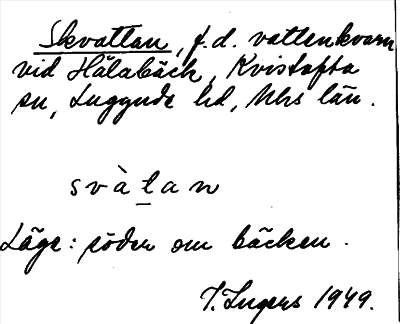 Skvattan, f.d. vattenkvarn
vid Hälabäck, Kvistofta
sn, Luggude hd, Mhs län.
svàt̲an
Läge: söder om bäcken.
I. Ingers 1949.